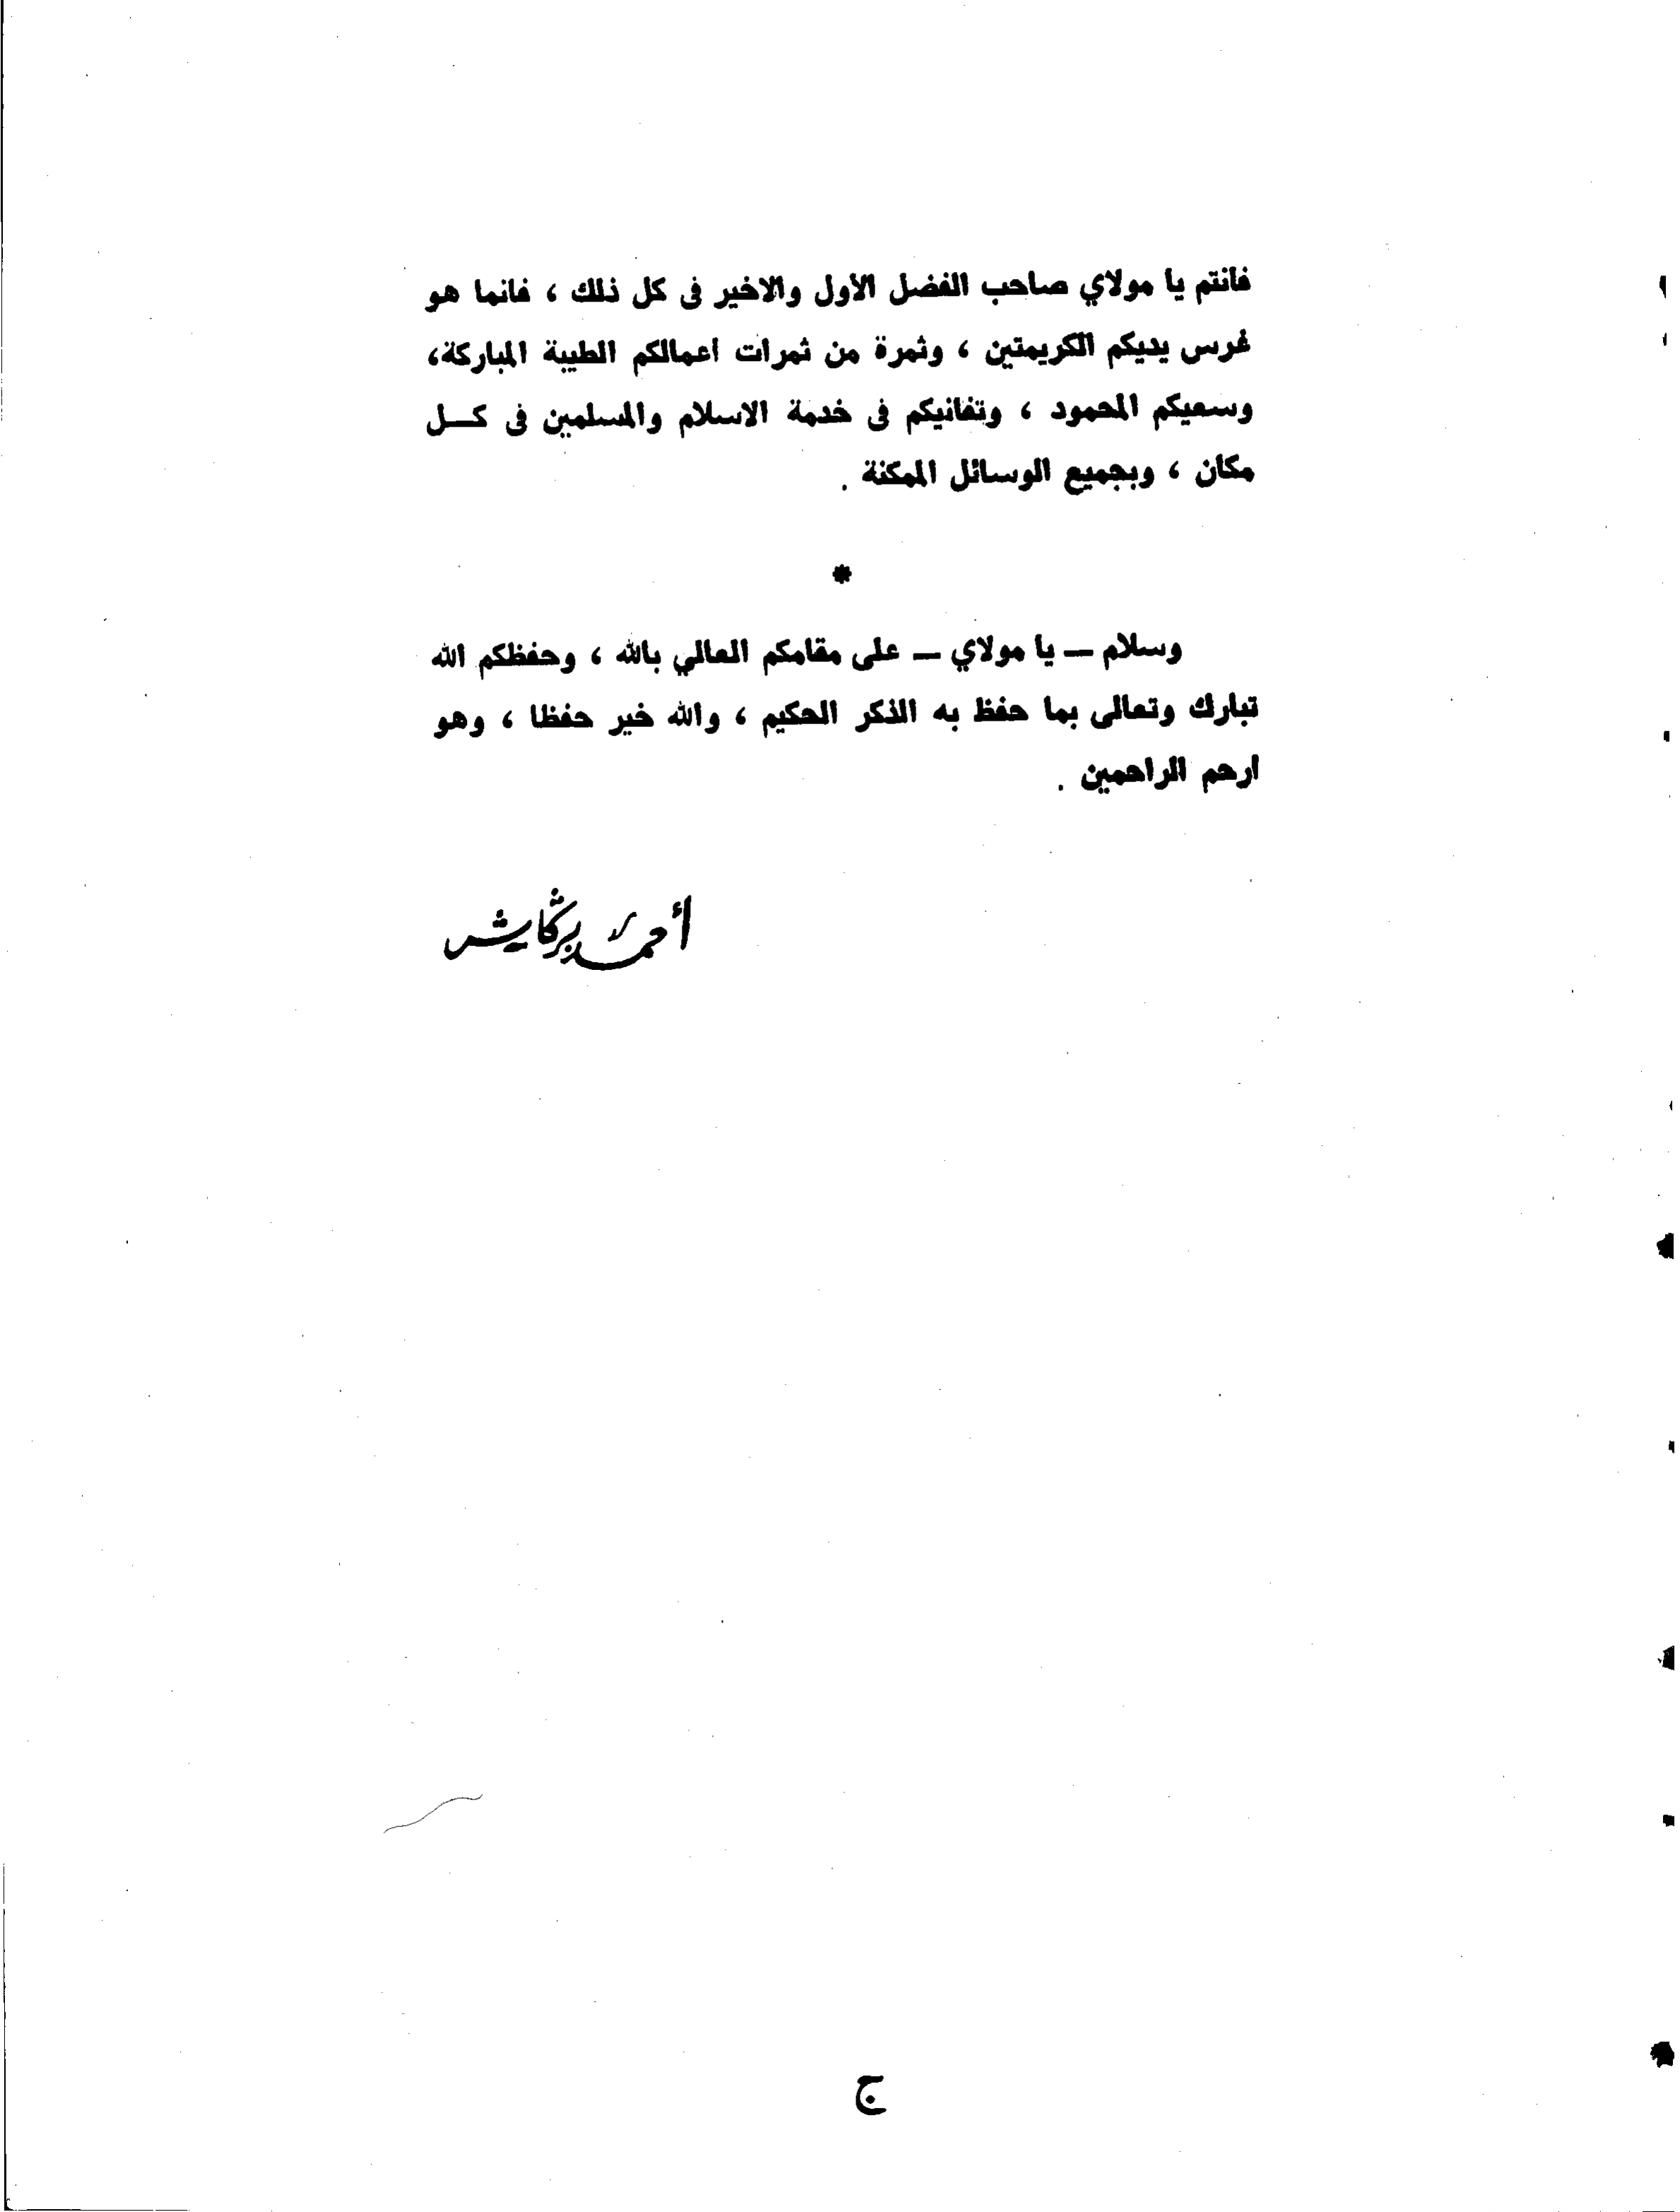 فانتم يا مولاي صاحب الفضل الأول والاخير فى كل ذلك ، فانما هو
غرس يديكم الكريمتين ، وثمرة من ثمرات اعمالكم الطيبة المباركة،
وسعيكم المحمود ، وتفانيكم فى خدمة الاسلام والمسلمين فى كـــل
مكان ، وبجميع الوسائل الممكنة .
*
وسلام — يا مولاي — على مقامكم العالي بالله ، وحفظكم الله
تبارك وتعالى بما حفظ به الذكر الحكيم ، والله خير حفظا ، وهو
ارحم الراحمين .
أحمد بركاش
ج